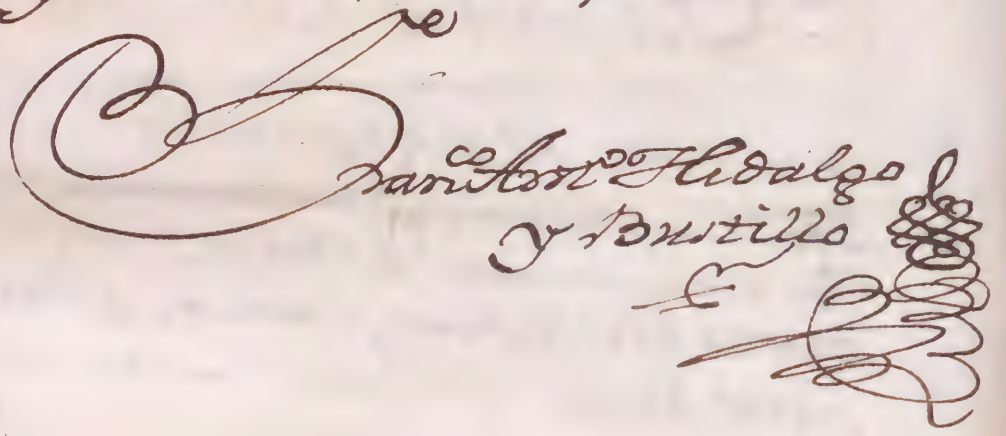 Franco Anto Hidalgo
y Bustillo